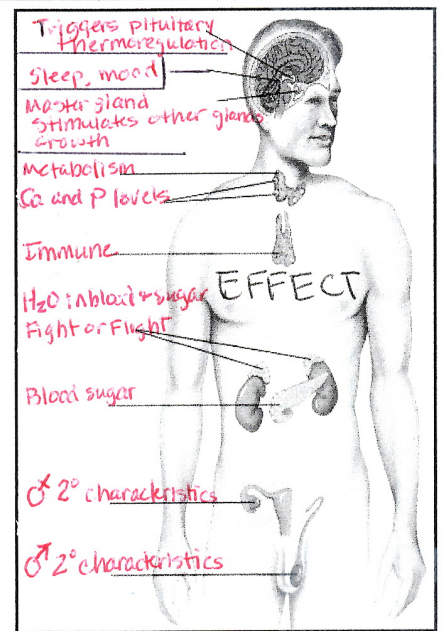 Triggers pituitary
thermoregulation
Sleep, mood
Master gland
stimulates other glands
Growth
Metabolism
Ca and P levels
Immune
EFFECT
H₂O in blood + sugar
Fight or Flight
Blood sugar
♂ 2° characteristics
♂ 2° characteristics